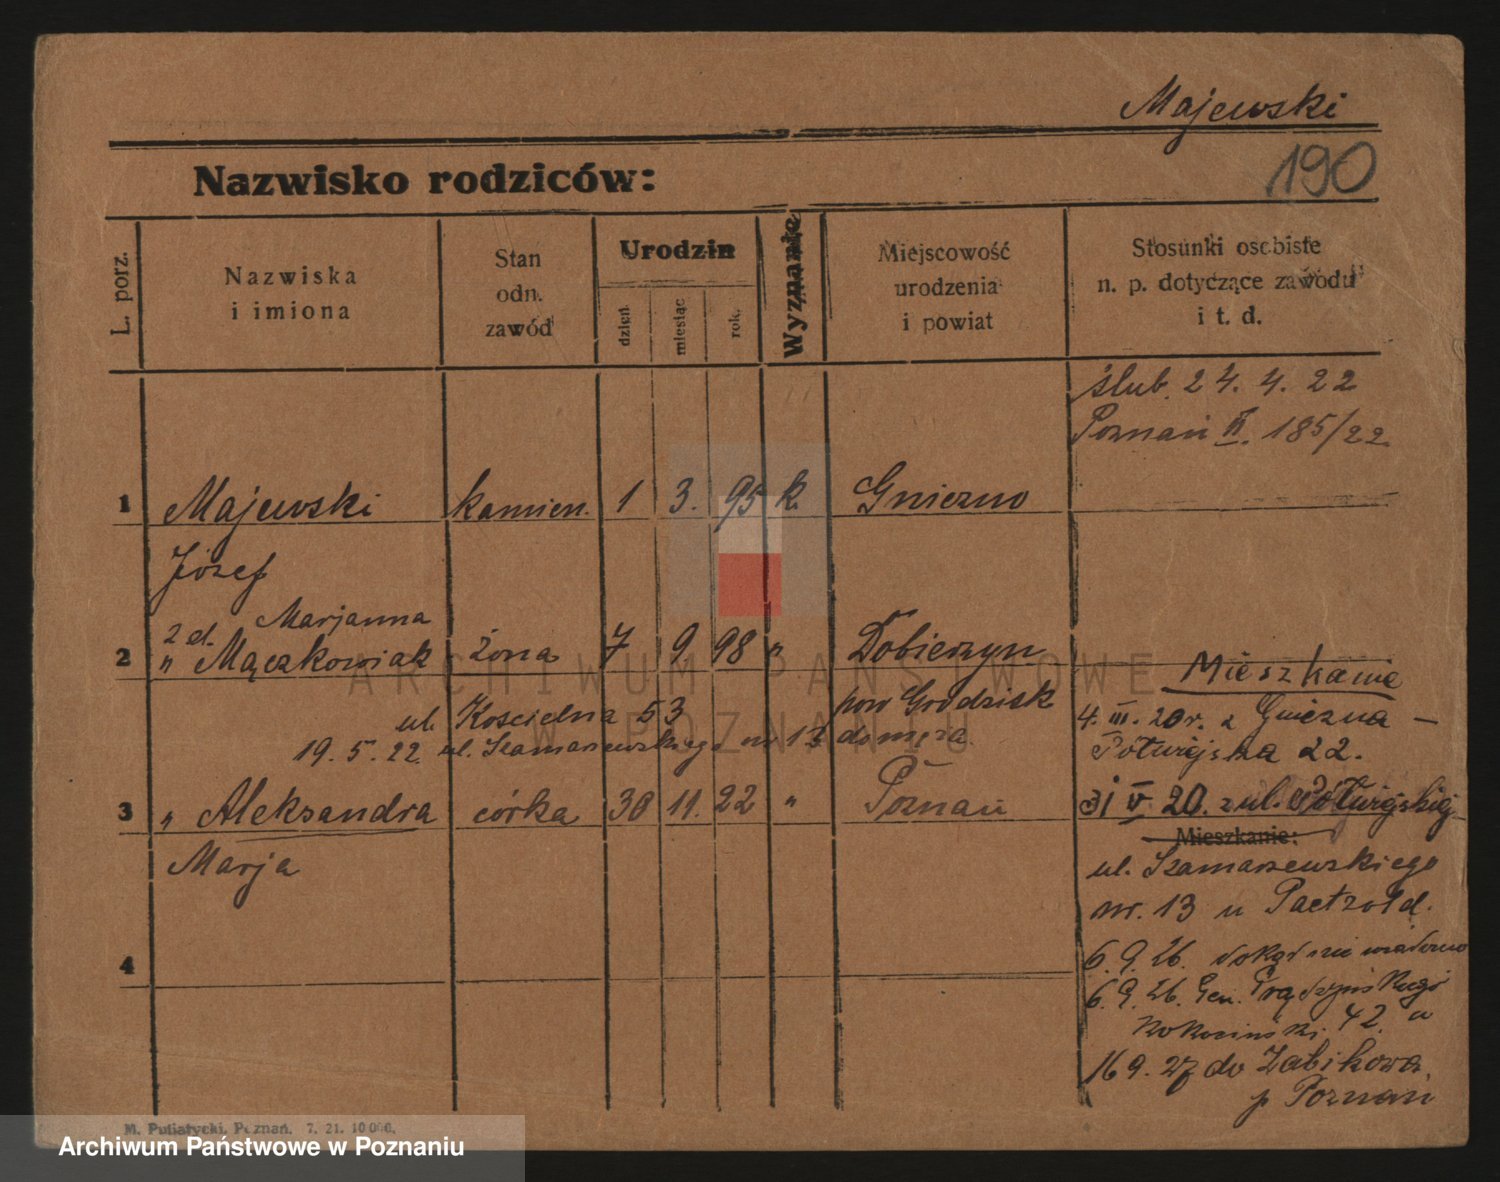 Majewski
190
Nazwisko rodziców:
L. porz.
Nazwiska
i imiona
Stan
odn.
zawód
Urodzin
dzień.
miesiąc
rok.
Wyznanie
Miejscowość
urodzenia
i powiat
Stosunki osobiste
n. p. dotyczące zawodu
i t. d.
ślub. 24. 4. 22
Poznań II. 185/22
1 Majewski kamien. 1 3. 95 k. Gniezno
Józef
2 d. Marjanna
2 " Mączkowiak żona 7 9. 98 " Dobieżyn
pow Grodzisk
ul. Kościelna 53
19. 5. 22. ul. Szamarzewskiego nr 13 do męża.
Mieszkanie
4. III. 20 r. z Gniezna —
Półwiejska 22.
3 " Aleksandra córka 30 11. 22 " Poznań
Marja
31 V 20. z ul. Półwiejskiej
Mieszkanie:
ul. Szamarzewskiego
nr. 13 u Paetzold.
4
6. 9. 26. dokąd nie wiadomo
6. 9. 26. Gen. Prądzyńskiego
42. u
16 9. 27 do Żabikowa
p Poznań
M. Putiatycki, Poznań. 7. 21. 10 000.
ARCHIWUM PAŃSTWOWE
W POZNANIU
Archiwum Państwowe w Poznaniu